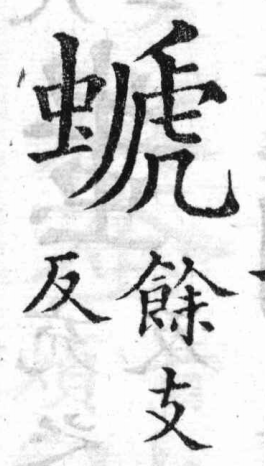 螔
餘支
反